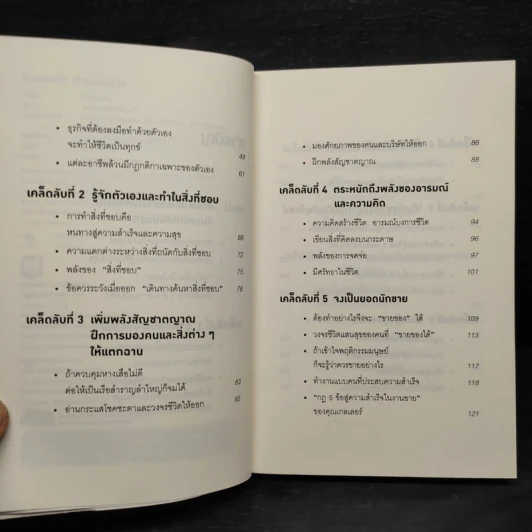 • ธุรกิจที่ต้องลงมือทำด้วยตัวเอง
จะทำให้ชีวิตเป็นทุกข์ 48
• แต่ละอาชีพล้วนมีกฎกติกาเฉพาะของตัวเอง 61
เคล็ดลับที่ 2 รู้จักตัวเองและทำในสิ่งที่ชอบ
• การทำสิ่งที่ชอบคือ
หนทางสู่ความสำเร็จและความสุข 68
• ความแตกต่างระหว่างสิ่งที่ถนัดกับสิ่งที่ชอบ 72
• พลังของ "สิ่งที่ชอบ" 75
• ข้อควรระวังเมื่อออก "เดินทางค้นหาสิ่งที่ชอบ" 78
เคล็ดลับที่ 3 เพิ่มพลังสัญชาตญาณ
ฝึกการมองคนและสิ่งต่าง ๆ
ให้แตกฉาน
• ถ้าควบคุมหางเสือไม่ดี
ต่อให้เป็นเรือสำราญลำใหญ่ก็จมได้ 83
• อ่านกระแสโชคชะตาและวงจรชีวิตให้ออก 85
• มองศักยภาพของคนและบริษัทให้ออก 86
• ฝึกพลังสัญชาตญาณ 88
เคล็ดลับที่ 4 ตระหนักถึงพลังของอารมณ์
และความคิด
• ความคิดสร้างชีวิต อารมณ์บงการชีวิต 94
• เขียนสิ่งที่คิดลงบนกระดาษ 96
• พลังของการจดจ่อ 97
• มีศรัทธาในชีวิต 101
เคล็ดลับที่ 5 จงเป็นยอดนักขาย
• ต้องทำอย่างไรจึงจะ "ขายของ" ได้ 109
• วงจรชีวิตแสนสุขของคนที่ "ขายของได้" 113
• ถ้าเข้าใจพฤติกรรมมนุษย์
ก็จะรู้ว่าควรขายอย่างไร 117
• ทำงานแบบคนที่ประสบความสำเร็จ 118
• "กฎ 5 ข้อสู่ความสำเร็จในงานขาย"
ของคุณเกลเลอร์ 121